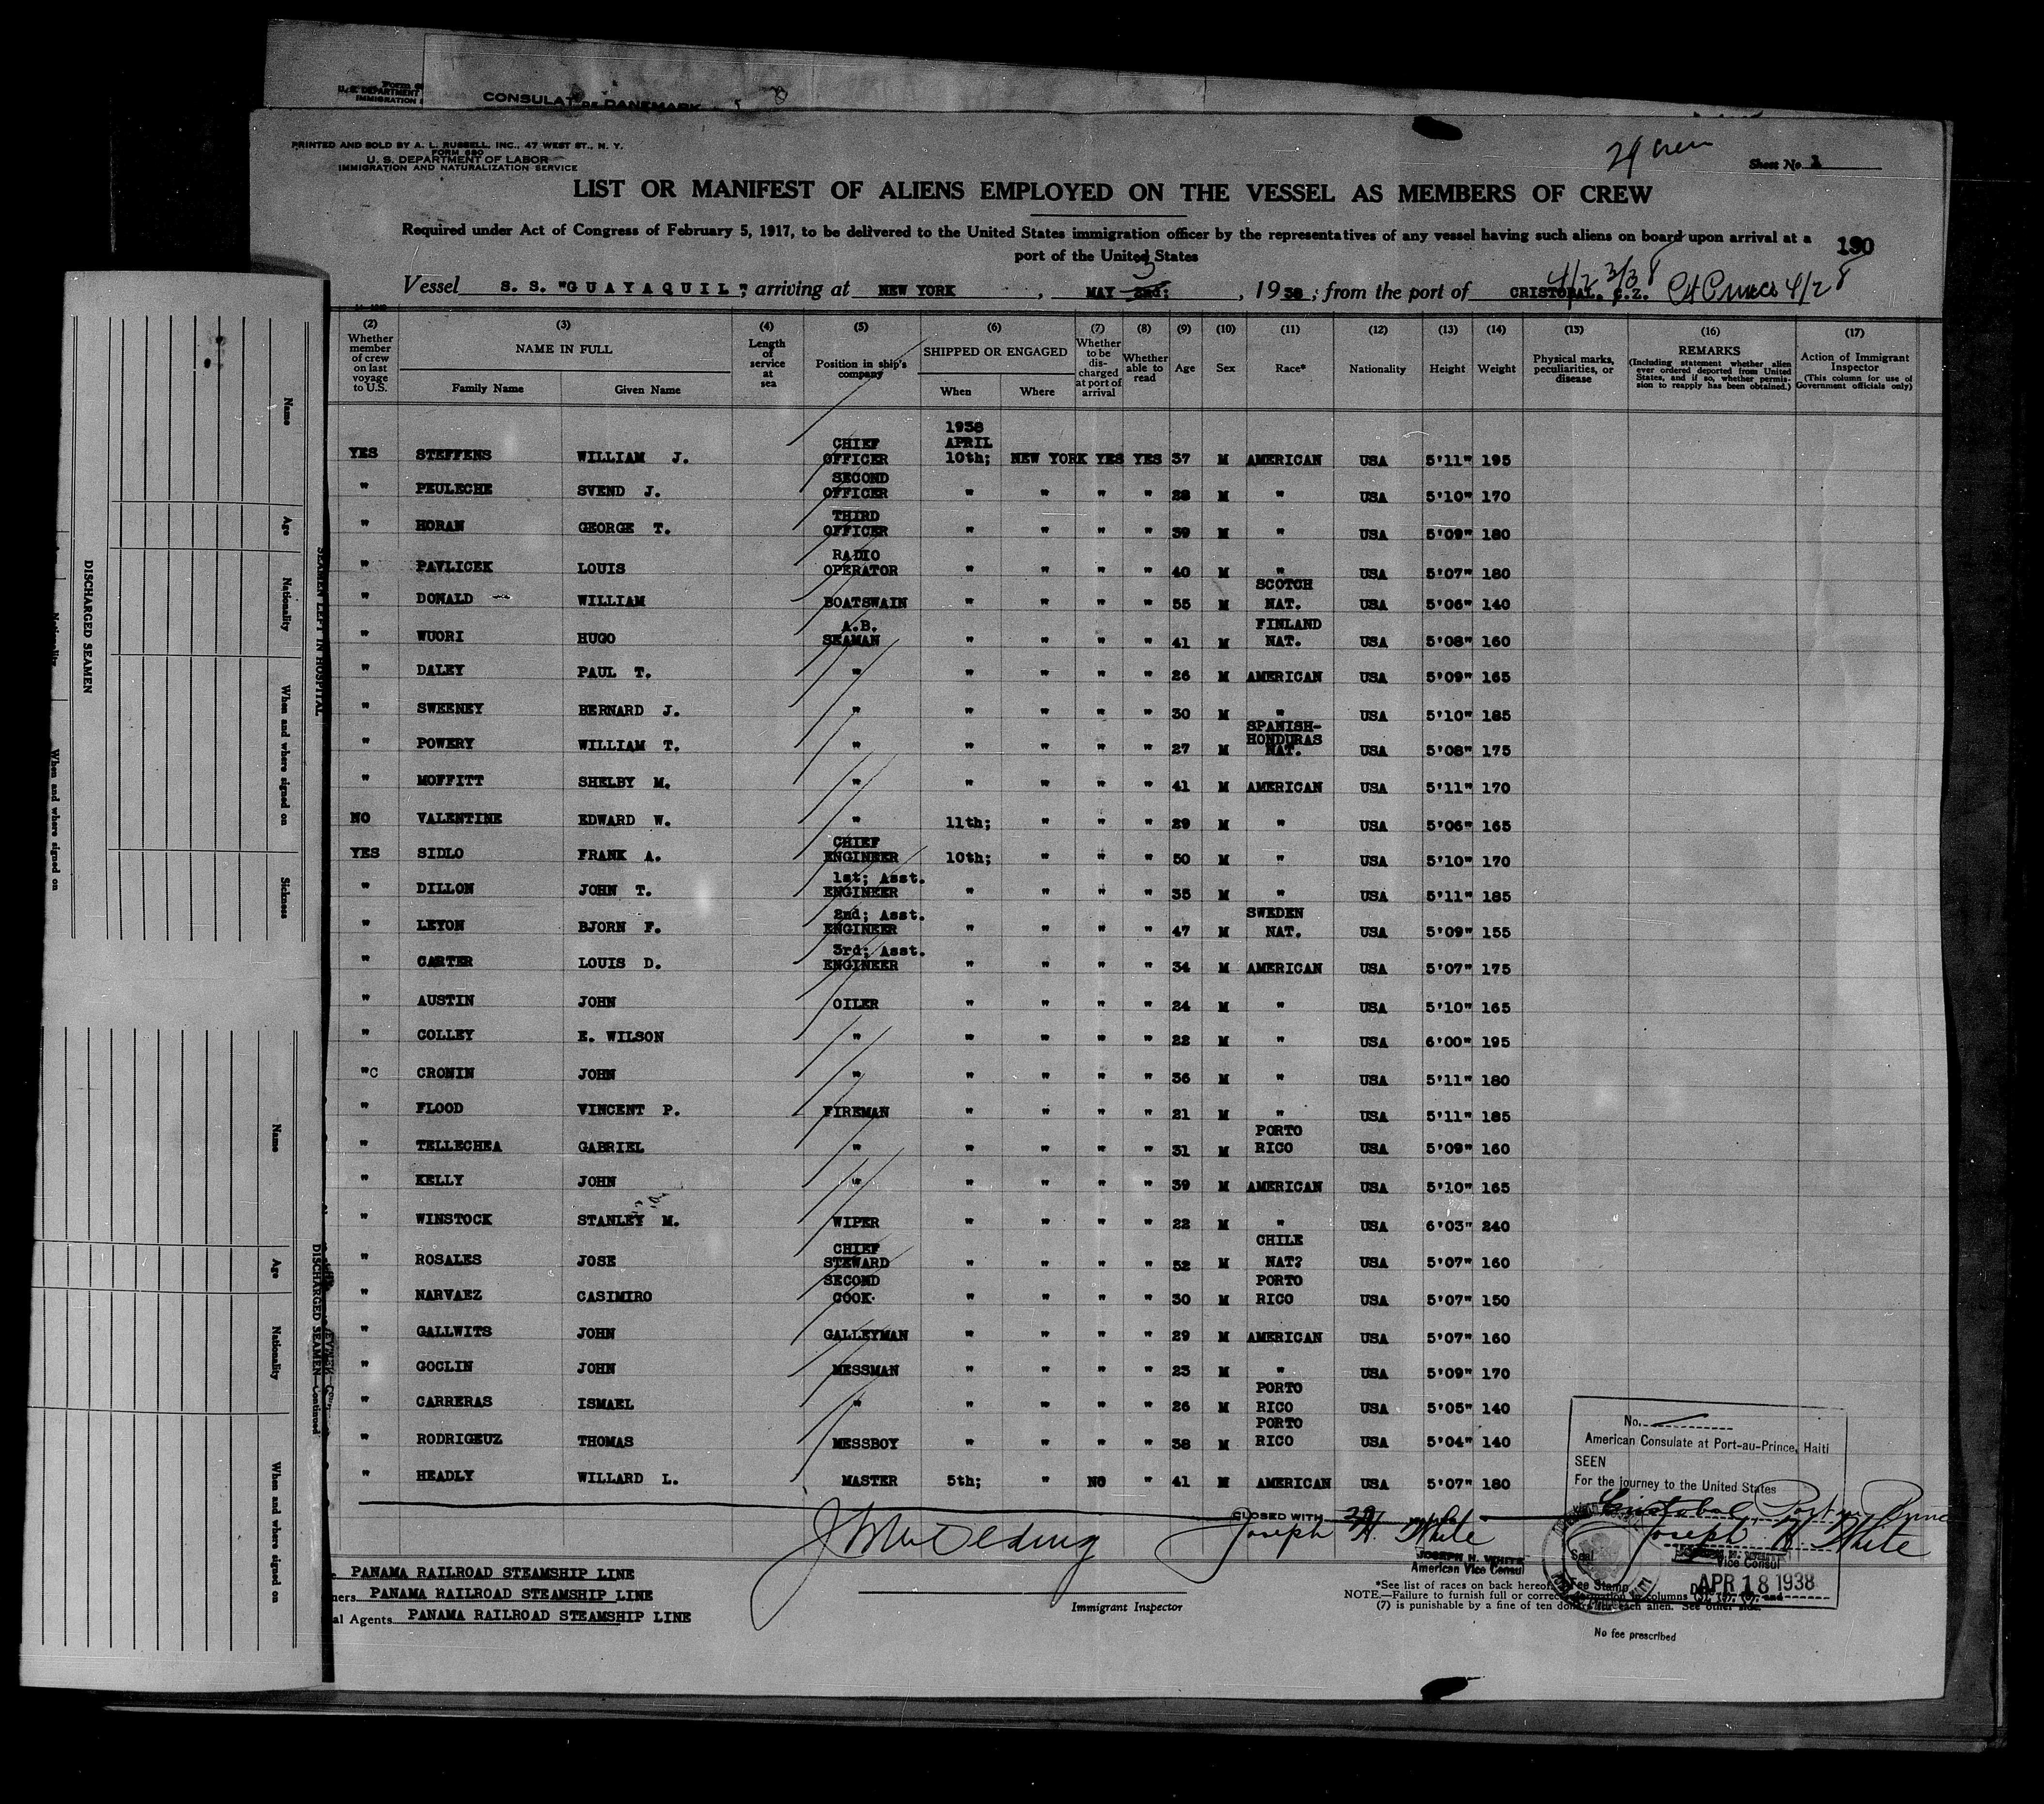 Form 6
U. S. DEPARTMENT
IMMIGRATION
CONSULAT DE DANEMARK
PRINTED AND SOLD BY A. L. RUSSELL, INC., 47 WEST ST., N. Y.
FORM 680
U. S. DEPARTMENT OF LABOR
IMMIGRATION AND NATURALIZATION SERVICE
29 crew
Sheet No. 1
LIST OR MANIFEST OF ALIENS EMPLOYED ON THE VESSEL AS MEMBERS OF CREW
Required under Act of Congress of February 5, 1917, to be delivered to the United States immigration officer by the representatives of any vessel having such aliens on board upon arrival at a
port of the United States
130
Vessel S. S. "GUAYAQUIL", arriving at NEW YORK, MAY 2nd; 3, 1938; from the port of CRISTOBAL, C.Z.
(2) (3) (4) (5) (6) (7) (8) (9) (10) (11) (12) (13) (14) (15) (16) (17)
Whether member of crew on last voyage to U.S.
NAME IN FULL
Family Name
Given Name
Length of service at sea
Position in ship's company
SHIPPED OR ENGAGED
When
Where
Whether to be discharged at port of arrival
Whether able to read
Age
Sex
Race*
Nationality
Height
Weight
Physical marks, peculiarities, or disease
REMARKS
(Including statement whether alien ever ordered deported from United States, and if so, whether permission to reapply has been obtained.)
Action of Immigrant Inspector
(This column for use of Government officials only)
YES STEFFENS WILLIAM J. CHIEF OFFICER 1938 APRIL 10th; NEW YORK YES YES 37 M AMERICAN USA 5'11" 195
" PEULECHE SVEND J. SECOND OFFICER " " " " 28 M " USA 5'10" 170
" HORAN GEORGE T. THIRD OFFICER " " " " 39 M " USA 5'09" 180
" PAVLICEK LOUIS RADIO OPERATOR " " " " 40 M " USA 5'07" 180
" DONALD WILLIAM BOATSWAIN " " " " 55 M SCOTCH NAT. USA 5'06" 140
" WUORI HUGO A.B. SEAMAN " " " " 41 M FINLAND NAT. USA 5'08" 160
" DALEY PAUL T. " " " " " 26 M AMERICAN USA 5'09" 165
" SWEENEY BERNARD J. " " " " " 30 M " USA 5'10" 185
" POWERY WILLIAM T. " " " " " 27 M SPANISH-HONDURAS NAT. USA 5'08" 175
" MOFFITT SHELBY M. " " " " " 41 M AMERICAN USA 5'11" 170
NO VALENTINE EDWARD W. " 11th; " " " 29 M " USA 5'06" 165
YES SIDLO FRANK A. CHIEF ENGINEER 10th; " " " 50 M " USA 5'10" 170
" DILLON JOHN T. 1st; Asst. ENGINEER " " " " 35 M " USA 5'11" 185
" LEYON BJORN F. 2nd; Asst. ENGINEER " " " " 47 M SWEDEN NAT. USA 5'09" 155
" CARTER LOUIS D. 3rd; Asst. ENGINEER " " " " 34 M AMERICAN USA 5'07" 175
" AUSTIN JOHN OILER " " " " 24 M " USA 5'10" 165
" COLLEY E. WILSON " " " " " 22 M " USA 6'00" 195
"C CRONIN JOHN " " " " " 36 M " USA 5'11" 180
" FLOOD VINCENT P. FIREMAN " " " " 21 M " USA 5'11" 185
" TELLECHEA GABRIEL " " " " " 31 M PORTO RICO USA 5'09" 160
" KELLY JOHN " " " " " 39 M AMERICAN USA 5'10" 165
" WINSTOCK STANLEY M. WIPER " " " " 22 M " USA 6'03" 240
" ROSALES JOSE CHIEF STEWARD " " " " 52 M CHILE NAT? USA 5'07" 160
" NARVAEZ CASIMIRO SECOND COOK " " " " 30 M PORTO RICO USA 5'07" 150
" GALLWITS JOHN GALLEYMAN " " " " 29 M AMERICAN USA 5'07" 160
" GOCLIN JOHN MESSMAN " " " " 23 M " USA 5'09" 170
" CARRERAS ISMAEL " " " " " 26 M PORTO RICO USA 5'05" 140
" RODRIGEUZ THOMAS MESSBOY " " " " 38 M PORTO RICO USA 5'04" 140
" HEADLY WILLARD L. MASTER 5th; " NO " 41 M AMERICAN USA 5'07" 180
CLOSED WITH 29
Joseph H. White
JOSEPH H. WHITE
American Vice Consul
No.
American Consulate at Port-au-Prince, Haiti
SEEN
For the journey to the United States
Cristobal, Port au Prince
Joseph H. White
Vice Consul
Seal
Fee Stamp
Date APR 18 1938
No fee prescribed
PANAMA RAILROAD STEAMSHIP LINE
ners PANAMA RAILROAD STEAMSHIP LINE
al Agents PANAMA RAILROAD STEAMSHIP LINE
Immigrant Inspector
*See list of races on back hereof.
NOTE.—Failure to furnish full or correct information in columns
(7) is punishable by a fine of ten dollars for each alien. See other side.
DISCHARGED SEAMEN
Name
Age
Nationality
When and where signed on
Sickness
SEAMEN LEFT IN HOSPITAL
Nationality
When and where signed on
Name
Age
Nationality
When and where signed on
DISCHARGED SEAMEN—Continued